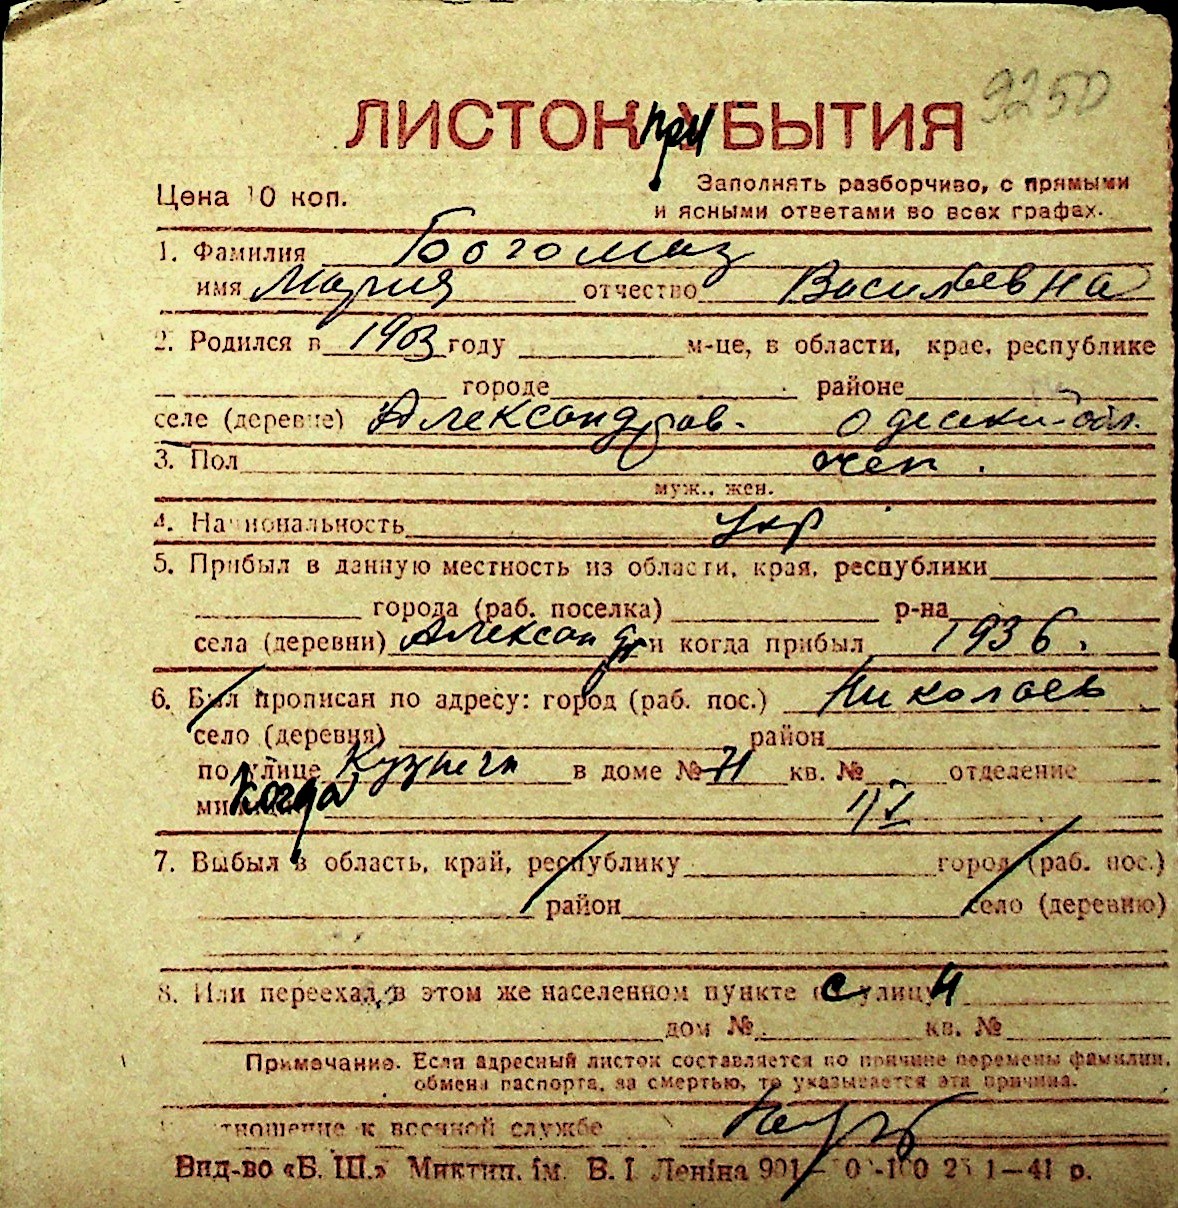 9250
ЛИСТОК при УБЫТИЯ
Цена 10 коп.
Заполнять разборчиво, с прямыми
и ясными ответами во всех графах.
1. Фамилия Богомаз
имя Мария отчество Васильевна
2. Родился в 1903 году м-це, в области, крае, республике
городе районе
селе (деревне) Александров. Одесск. обл.
3. Пол жен.
муж., жен.
4. Национальность укр
5. Прибыл в данную местность из области, края, республики
города (раб. поселка) р-на
села (деревни) Александр и когда прибыл 1936.
6. Был прописан по адресу: город (раб. пос.) Николаев
село (деревня) район
по улице в доме № 71 кв. № отделение
милиции Когда
7. Выбыл в область, край, республику город (раб. пос.)
район село (деревню)
8. Или переехал в этом же населенном пункте с улицы
дом № кв. №
Примечание. Если адресный листок составляется по причине перемены фамилии,
обмена паспорта, за смертью, то указывается эта причина.
отношение к военной службе
Вид-во «Б. Ш.» Миктип. ім. В. І. Леніна 901 1—41 р.